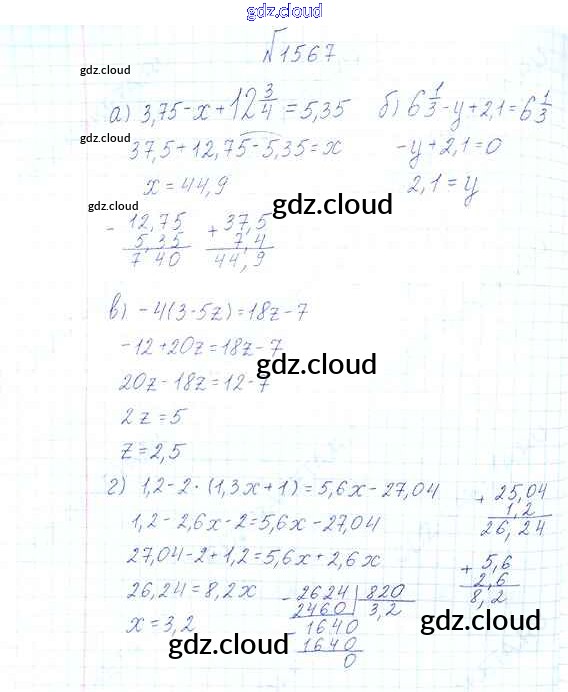 gdz.cloud
№1567
gdz.cloud
а) 3,75-x+12 3/4=5,35 б) 6 1/3-y+2,1=6 1/3
gdz.cloud
37,5+12,75-5,35=x -y+2,1=0
x=44,9 2,1=y
gdz.cloud gdz.cloud
- 12,75 + 37,5
5,35 7,4
7,40 44,9
в) -4(3-5z)=18z-7
-12+20z=18z-7
gdz.cloud
20z-18z=12-7
2z=5
gdz.cloud
z=2,5
г) 1,2-2·(1,3x+1)=5,6x-27,04 + 25,04
1,2
1,2-2,6x-2=5,6x-27,04 26,24
27,04-2+1,2=5,6x+2,6x + 5,6
2,6
26,24=8,2x - 2624 820 8,2
2460 3,2
x=3,2 - 1640
gdz.cloud gdz.cloud
1640
0